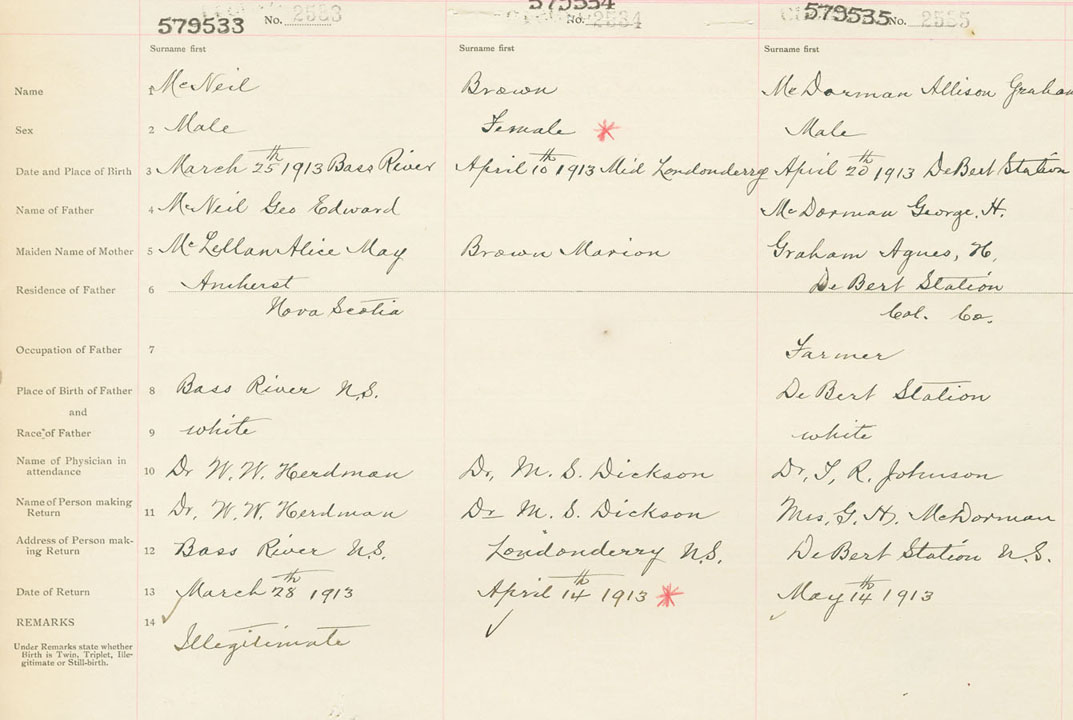 579533 No. 2583 579534 No. 2534 579535 No. 2535
Surname first Surname first Surname first
Name 1 McNeil Brown McDorman Allison Graham
Sex 2 Male Female * Male
Date and Place of Birth 3 March 25th 1913 Bass River April 10th 1913 Mid Londonderry April 20th 1913 DeBert Station
Name of Father 4 McNeil Geo Edward McDorman George. H.
Maiden Name of Mother 5 McLellan Alice May Brown Marion Graham Agnes, H.
Residence of Father 6 Amherst De Bert Station
Nova Scotia Col. Co.
Occupation of Father 7 Farmer
Place of Birth of Father 8 Bass River N.S. De Bert Station
and
Race of Father 9 white white
Name of Physician in
attendance 10 Dr W. W. Herdman Dr, M. S. Dickson Dr, T, R. Johnson
Name of Person making
Return 11 Dr, W. W. Herdman Dr M. S. Dickson Mrs, G. H. McDorman
Address of Person mak-
ing Return 12 Bass River N.S. Londonderry N.S. DeBert Station N.S.
Date of Return 13 March 28th 1913 April 14th 1913 * May 14th 1913
REMARKS 14 ✓ ✓ ✓
Illegitimate
Under Remarks state whether
Birth is Twin, Triplet, Ille-
gitimate or Still-birth.